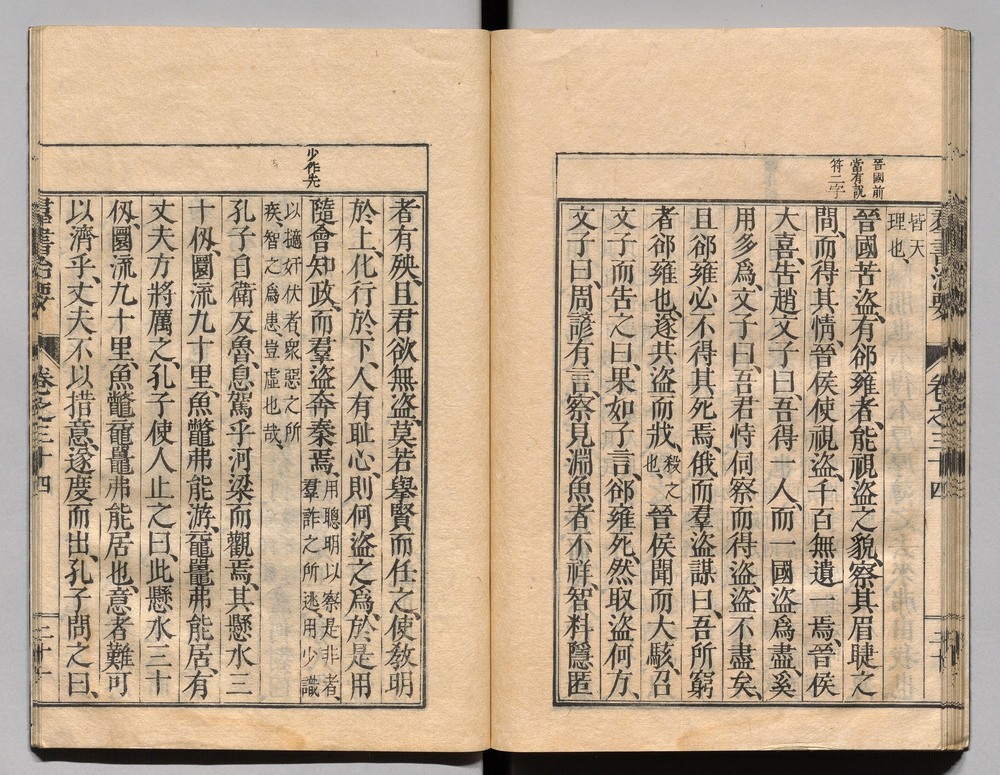 晉國前
當有說
符二字
羣書治要
卷之三十四
二十
皆天
理也、
晉國苦盜、有郤雍者、能視盜之貌、察其眉睫之
間、而得其情、晉侯使視盜、千百無遺一焉、晉侯
大喜、告趙文子曰、吾得一人、而一國盜爲盡、奚
用多爲、文子曰、吾君恃伺察而得盜、盜不盡矣、
且郤雍必不得其死焉、俄而羣盜謀曰、吾所窮
者郤雍也、遂共盜而戕、殺之
也、晉侯聞而大駭、召
文子而告之曰、果如子言、郤雍死、然取盜何方、
文子曰、周諺有言、察見淵魚者不祥、智料隱匿
少作先
者有殃、且君欲無盜、莫若擧賢而任之、使敎明
於上、化行於下、人有耻心、則何盜之爲、於是用
隨會知政、而羣盜奔秦焉、用聰明以察是非者、
羣詐之所逃、用少識
以擿奸伏者、衆惡之所
疾、智之爲患、豈虛也哉、
孔子自衛反魯、息駕乎河梁而觀焉、其懸水三
十仭、圜流九十里、魚鼈弗能游、黿鼉弗能居、有
丈夫方將厲之、孔子使人止之曰、此懸水三十
仭、圜流九十里、魚鼈黿鼉弗能居也、意者難可
以濟乎、丈夫不以措意、遂度而出、孔子問之曰、
羣書治要
卷之三十四
二十一